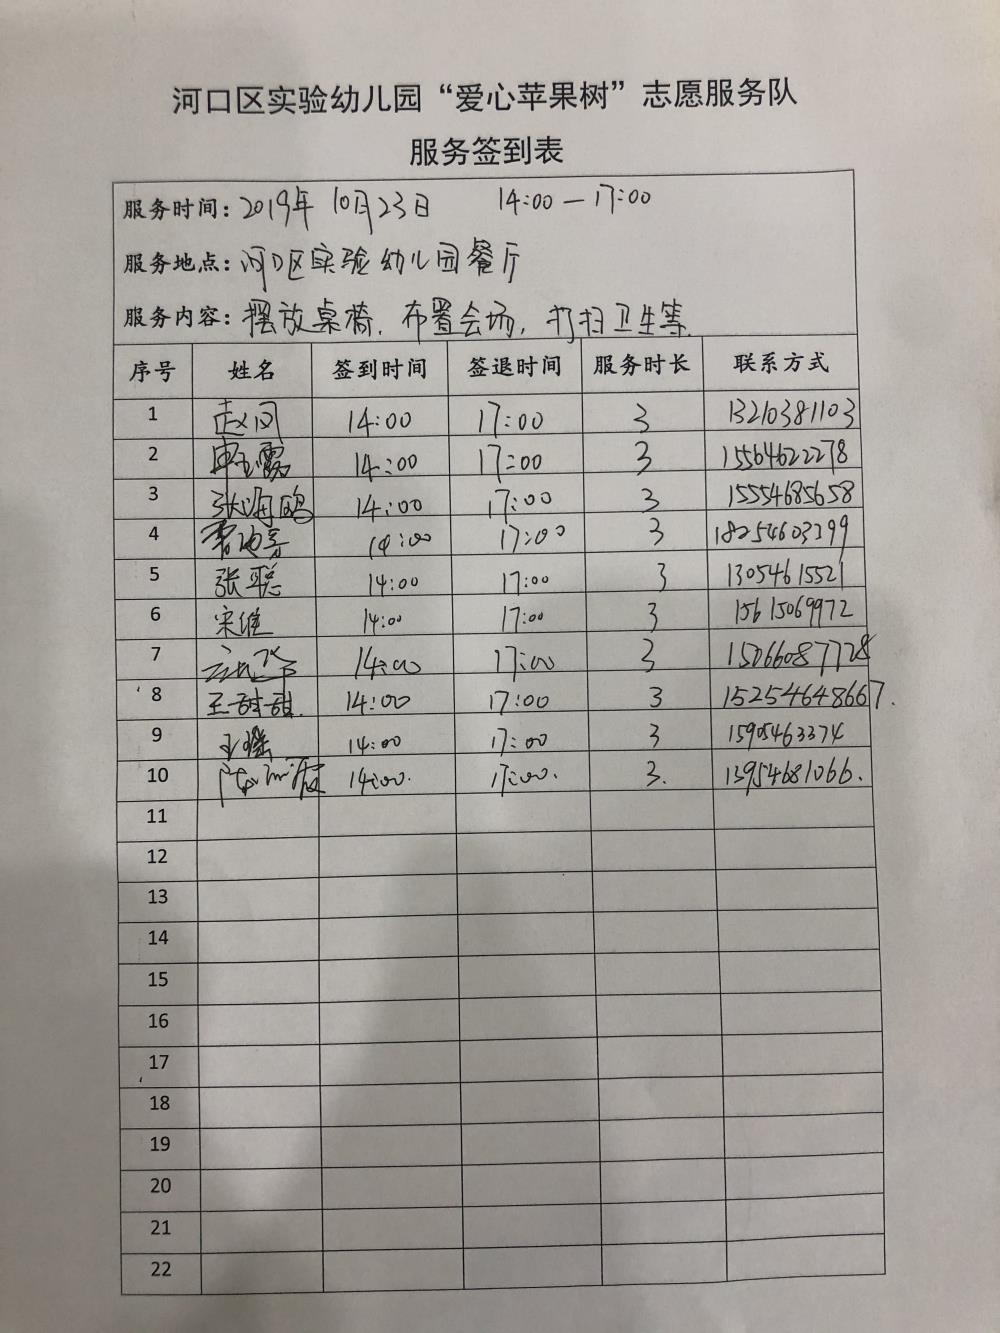 河口区实验幼儿园“爱心苹果树”志愿服务队
服务签到表
服务时间：2019年 10月23日 14:00—17:00
服务地点：河口区实验幼儿园餐厅
服务内容：摆放桌椅、布置会场，打扫卫生等.
序号 姓名 签到时间 签退时间 服务时长 联系方式
1 14:00 17:00 3 13210381103
2 14:00 17:00 3 15564622278
3 张海鸥 14:00 17:00 3 15554685658
4 14:00 17:00 3 18254603399
5 张聪 14:00 17:00 3 13054615521
6 宋维 14:00 17:00 3 15615069972
7 14:00 17:00 3 15066087728
8 王甜甜. 14:00 17:00 3 15254648667.
9 王瑶 14:00 17:00 3 15905463374
10 14:00. 17:00. 3. 13954681066.
11
12
13
14
15
16
17
18
19
20
21
22